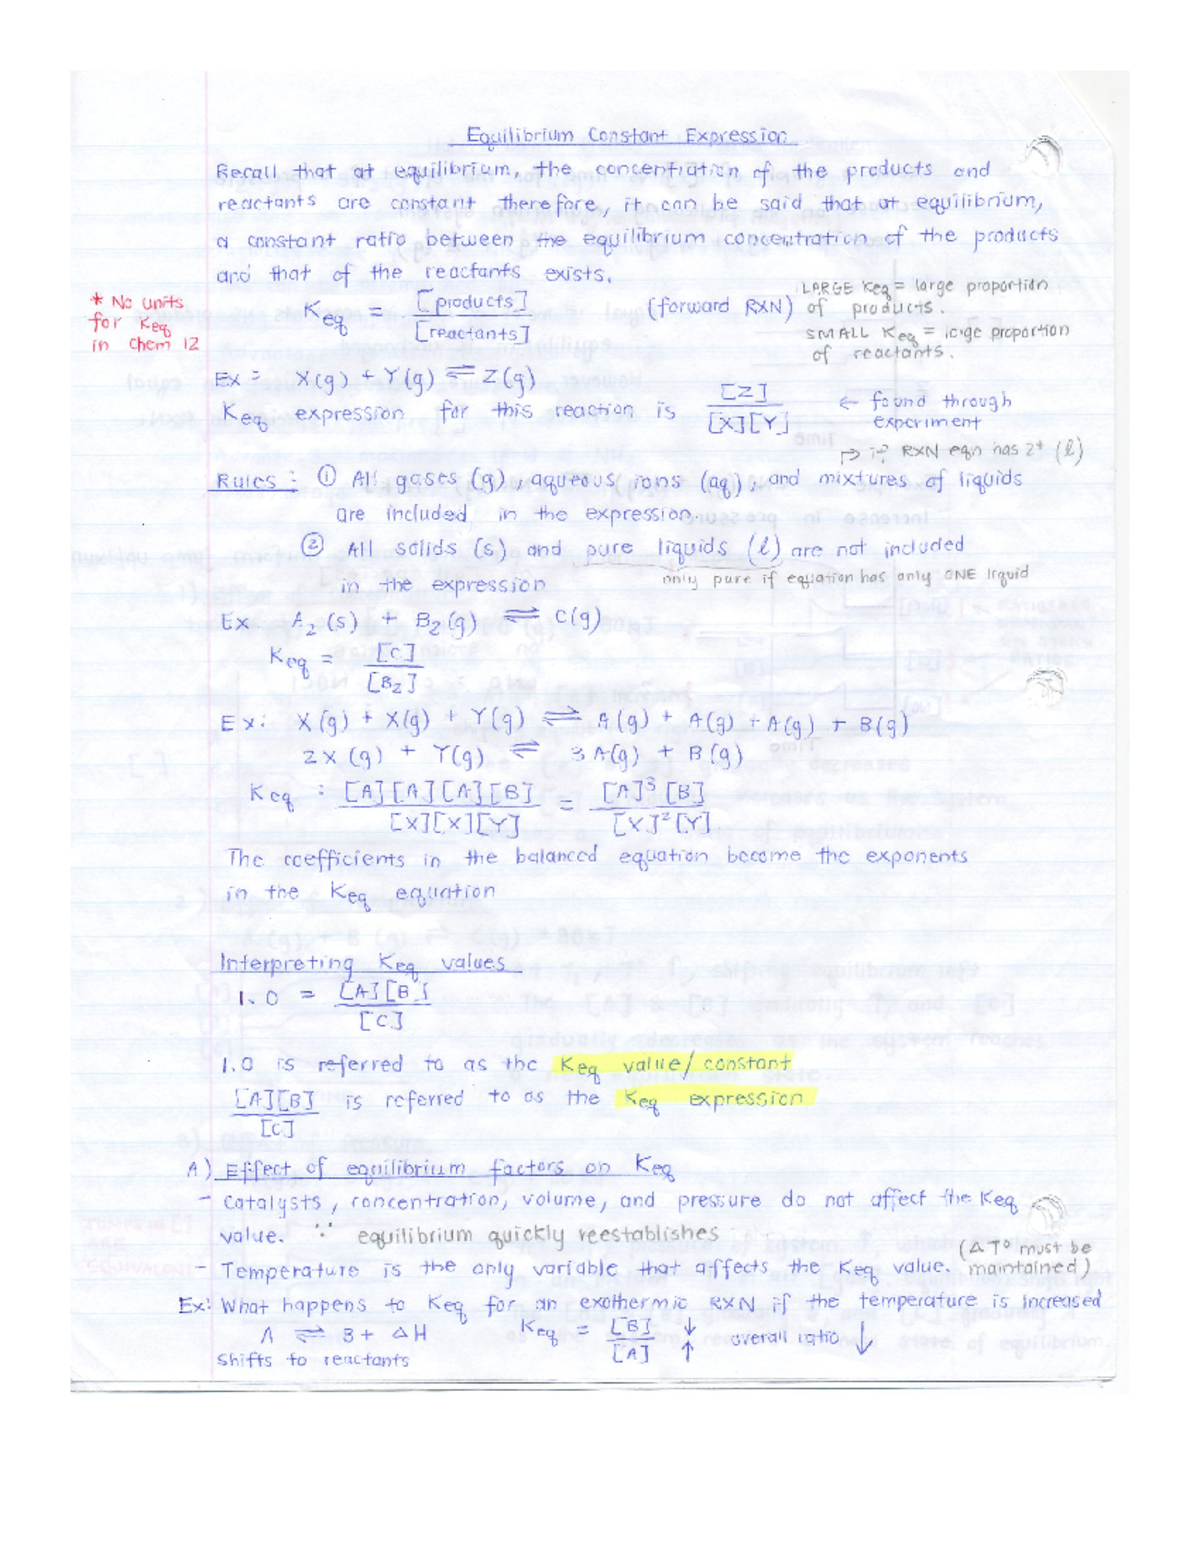 Equilibrium Constant Expression
Recall that at equilibrium, the concentration of the products and
reactants are constant therefore, it can be said that at equilibrium,
a constant ratio between the equilibrium concentration of the products
and that of the reactants exists.
* No units
for Keq
in Chem 12
Keq = [products] / [reactants] (forward RXN)
LARGE Keq = large proportion
of products.
SMALL Keq = large proportion
of reactants.
Ex: X(g) + Y(g) ⇌ Z(g)
Keq expression for this reaction is [Z] / [X][Y]
← found through
experiment
↱ if RXN eqn has 2+ (l)
Rules: ① All gases (g), aqueous ions (aq), and mixtures of liquids
are included in the expression.
② All solids (s) and pure liquids (l) are not included
in the expression
only pure if equation has only ONE liquid
Ex A₂(s) + B₂(g) ⇌ C(g)
Keq = [C] / [B₂]
Ex: X(g) + X(g) + Y(g) ⇌ A(g) + A(g) + A(g) + B(g)
2X(g) + Y(g) ⇌ 3A(g) + B(g)
Keq : [A][A][A][B] / [X][X][Y] = [A]³[B] / [X]²[Y]
The coefficients in the balanced equation become the exponents
in the Keq equation
Interpreting Keq values
1.0 = [A][B] / [C]
1.0 is referred to as the Keq value/constant
[A][B] / [C] is referred to as the Keq expression
A) Effect of equilibrium factors on Keq
- Catalysts, concentration, volume, and pressure do not affect the Keq
value. ∵ equilibrium quickly reestablishes
- Temperature is the only variable that affects the Keq value. (ΔT° must be
maintained)
Ex: What happens to Keq for an exothermic RXN if the temperature is increased
A ⇌ B + ΔH Keq = [B] ↓ / [A] ↑ overall ratio ↓
Shifts to reactants